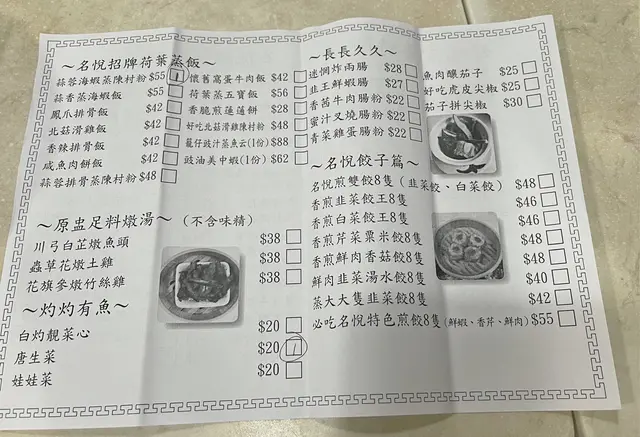 ～名悅招牌荷葉蒸飯～
蒜蓉海蝦蒸陳村粉 $55 1
蒜香蒸海蝦飯 $55
鳳爪排骨飯 $42
北菇滑雞飯 $42
香辣排骨飯 $42
咸魚肉餅飯 $42
蒜蓉排骨蒸陳村粉 $48
懷舊窩蛋牛肉飯 $42
荷葉蒸五寶飯 $56
香脆煎蓮蓮餅 $28
好吃北菇滑雞陳村粉 $48
籠仔豉汁蒸魚云(1份) $88
豉油美中蝦(1份) $62
～原盅足料燉湯～（不含味精）
川弓白芷燉魚頭 $38
蟲草花燉土雞 $38
花旗參燉竹絲雞 $38
～灼灼有魚～
白灼靚菜心 $20
唐生菜 $20 1
娃娃菜 $20
～長長久久～
迷惘炸雨腸 $28
韭王鮮蝦腸 $27
香茜牛肉腸粉 $22
蜜汁叉燒腸粉 $22
青菜雞蛋腸粉 $22
魚肉釀茄子 $25
好吃虎皮尖椒 $25
茄子拼尖椒 $30
～名悅餃子篇～
名悅煎雙餃8隻（韭菜餃、白菜餃） $48
香煎韭菜餃王8隻 $46
香煎白菜餃王8隻 $46
香煎芹菜粟米餃8隻 $48
香煎鮮肉香菇餃8隻 $48
鮮肉韭菜湯水餃8隻 $40
蒸大大隻韭菜餃8隻 $42
必吃名悅特色煎餃8隻(鮮蝦、香芹、鮮肉) $55